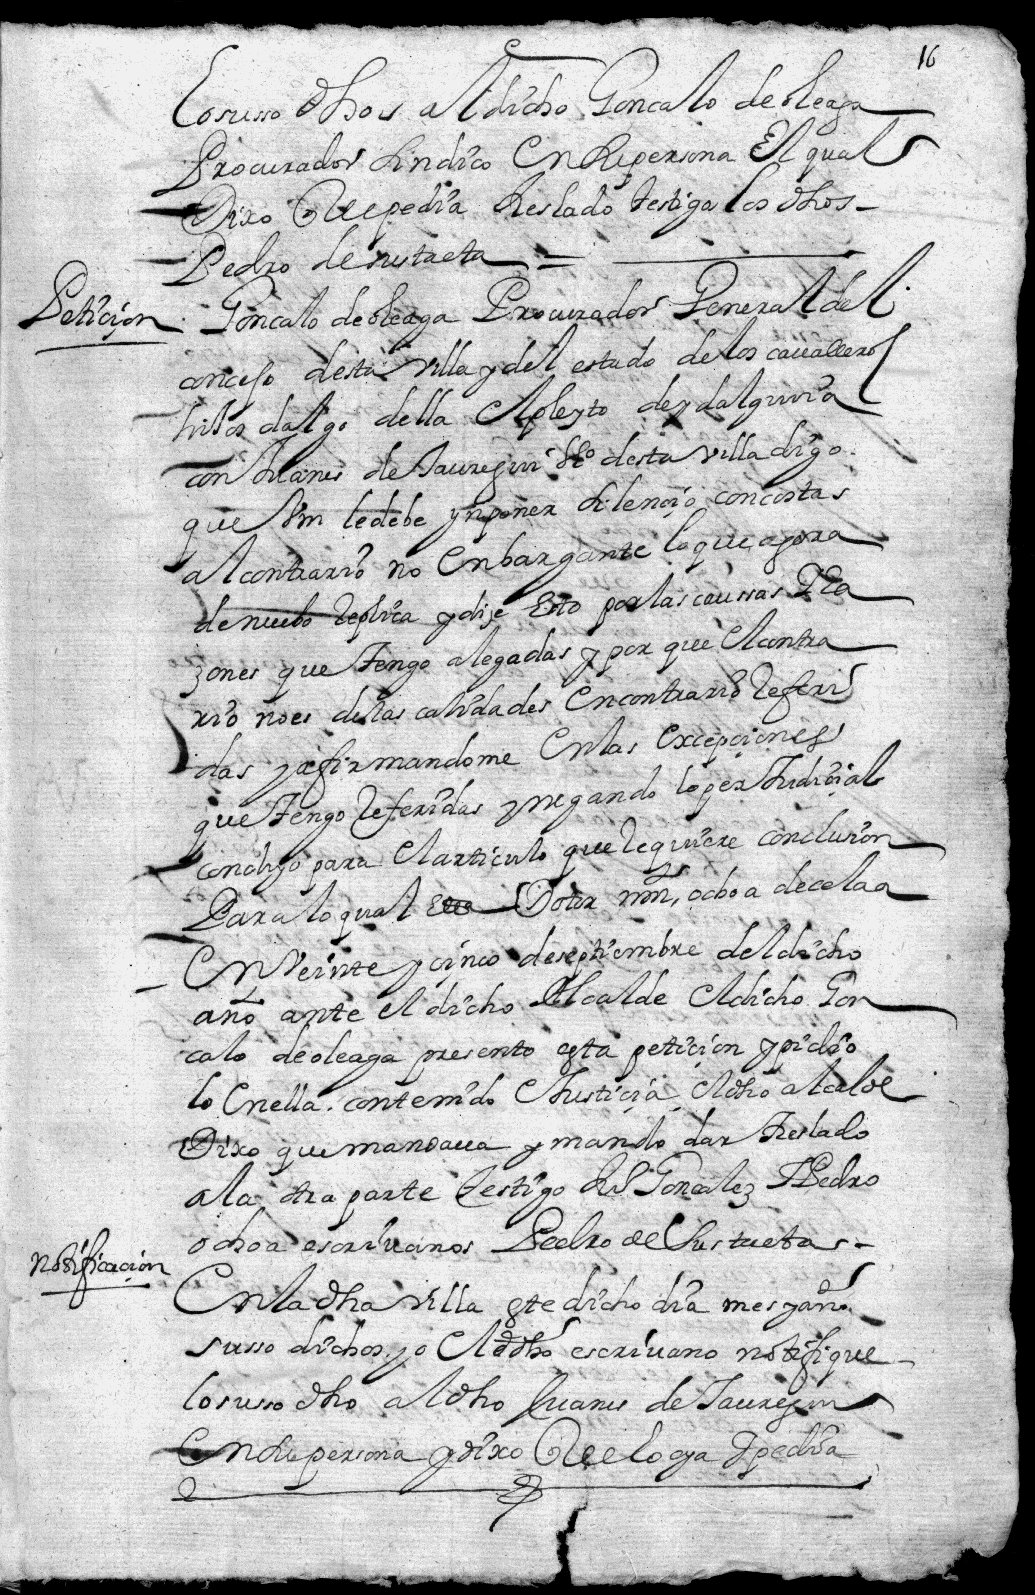 16
Losusso dhos al dicho Goncalo de oleaga
Procurador Sindico en su persona El qual
Dixo que pedia treslado testigo los dhos
Pedro de
Peticion
Goncalo de oleaga Procurador General del
concejo desta villa y del estado de los cavalleros
hijos dalgo della el pleyto de ydalguuia
con Juanes de Jauregui vzo desta villa digo
que Vm le debe ynponer silencio con costas
al contrario no enbargante lo que agora
de nuebo replica y dije Esto por las caussas y Ra
zones que tengo alegadas y por que el contra
rio no es de las calidades en contrario referi
das y afirmandome en las excepciones
que tengo referidas y negando lo perjudicial
concluyo para el articulo que requiere conclusion
Para lo qual Dotor mrn, ochoa de celaa
En veinte y cinco de septiembre del dicho
año ante el dicho Alcalde el dicho Gon
calo de oleaga presento esta peticion y pidio
lo en ella contenido e Justicia el dho alcalde
Dixo que mandaua y mando dar treslado
a la otra parte testigo Gonçalez y Pedro
ochoa escriuanos Pedro de
Notificacion
En la dha villa este dicho dia mes y año
susso dichos yo el dho escriuano notifique
lo susso dho al dho Juanes de Jauregui
en su persona y dixo que lo oya y pedia